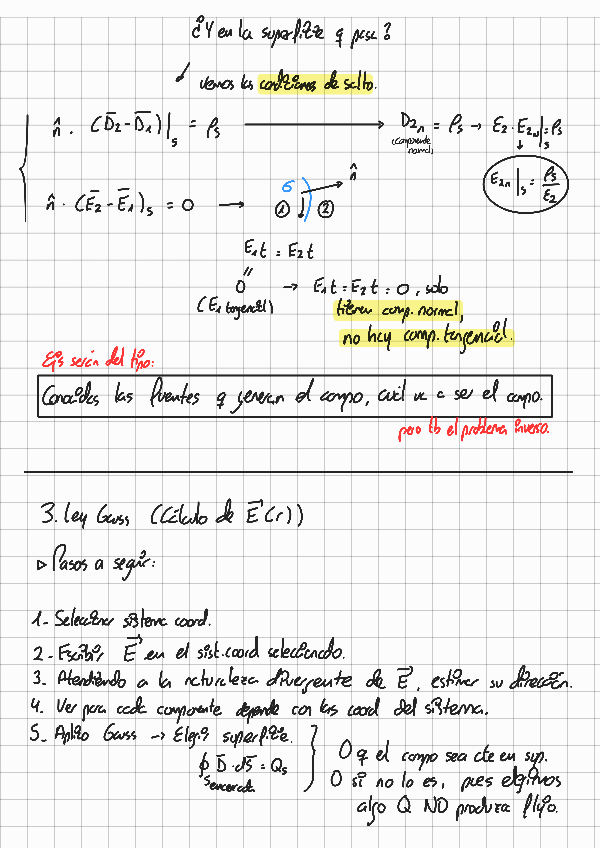 ¿Y en la superficie q pasa?
vemos las condiciones de salto.
n̂ · (D̄2 - D̄1)|s = ρs → D2n = ρs → E2 · E2n|s = ρs
(componente normal)
E2n|s = ρs/ε2
n̂ · (Ē2 - Ē1)s = 0 →
σ n̂
① ②
E1t = E2t
"
0 → E1t = E2t = 0, solo
(E1 tangencial) tienen comp. normal,
no hay comp. tangencial.
Ejs serán del tipo:
Conocidas las fuentes q generan el campo, cuál va a ser el campo.
pero tb el problema inverso.
3. Ley Gauss (Cálculo de E⃗(r))
▷ Pasos a seguir:
1- Seleccionar sistema coord.
2- Escribir E⃗ en el sist. coord seleccionado.
3. Atendiendo a la naturaleza divergente de E⃗, estimar su dirección.
4. Ver para cada componente depende con las coord del sistema.
5- Aplico Gauss → Elegir superficie.
∮ D̄ · ds̄ = Qs
Sencerrada
O q el campo sea cte en sup.
O si no lo es, pues elegimos
algo Q NO produzca flujo.